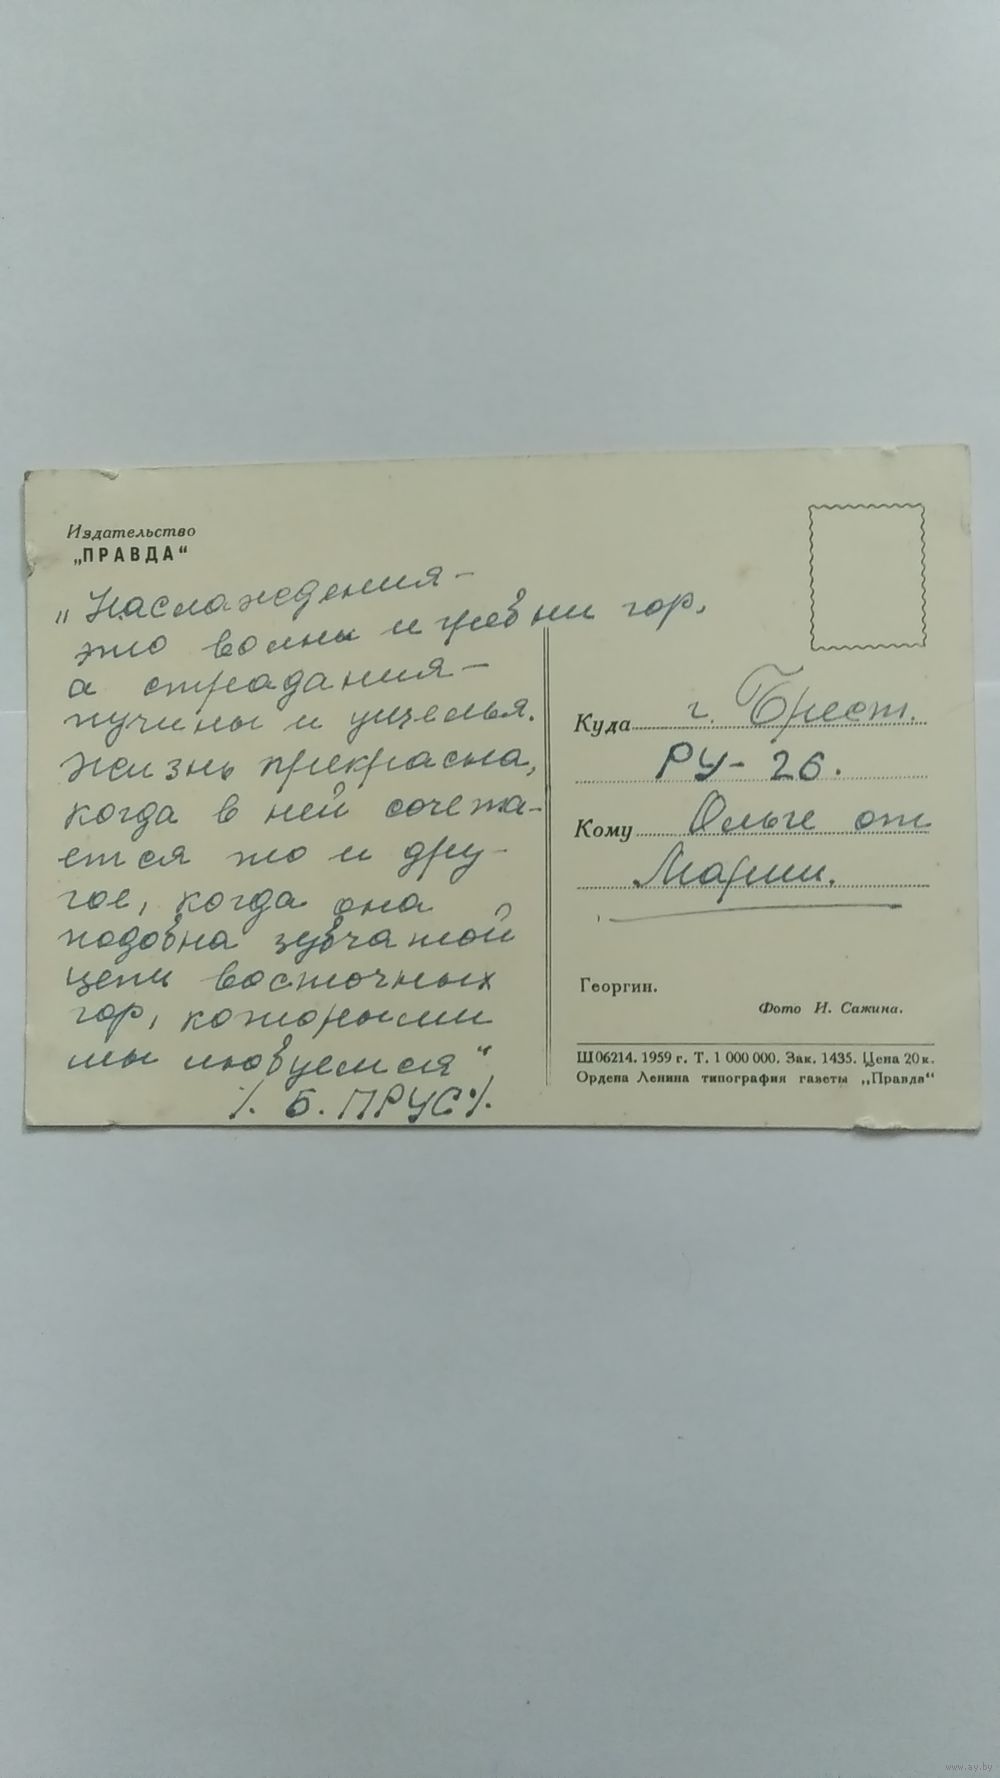 Издательство
„ПРАВДА“
„Наслаждения –
это волны и гребни гор,
а страдания –
пучины и ущелья.
Жизнь прекрасна,
когда в ней сочета-
ется то и дру-
гое, когда она
подобна зубчатой
цепи восточных
гор, которыми
мы любуемся“
/. Б. ПРУС /.
Куда г. Брест.
РУ – 26.
Кому Ольге от
Марии.
Георгин.
Фото И. Сажина.
Ш06214. 1959 г. Т. 1 000 000. Зак. 1435. Цена 20 к.
Ордена Ленина типография газеты „Правда“
www.ay.by